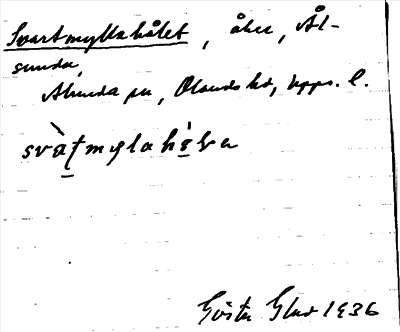 Svartmyllahålet, åker, Ål-
sunda,
Alunda sn, Olands hd, Upps. l.
Gösta Glad 1936